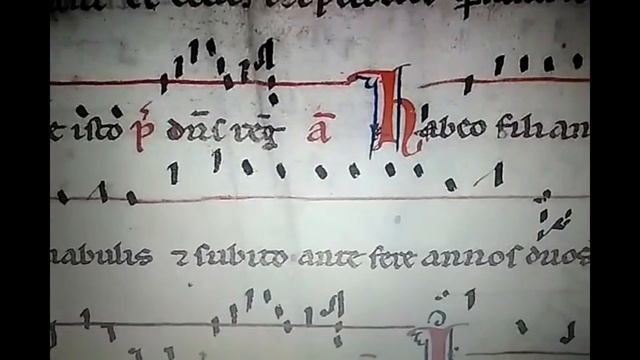 e isto p̄ dn̄s reḡ ā habeo filian
nabulis ⁊ subito ante fere annos duos